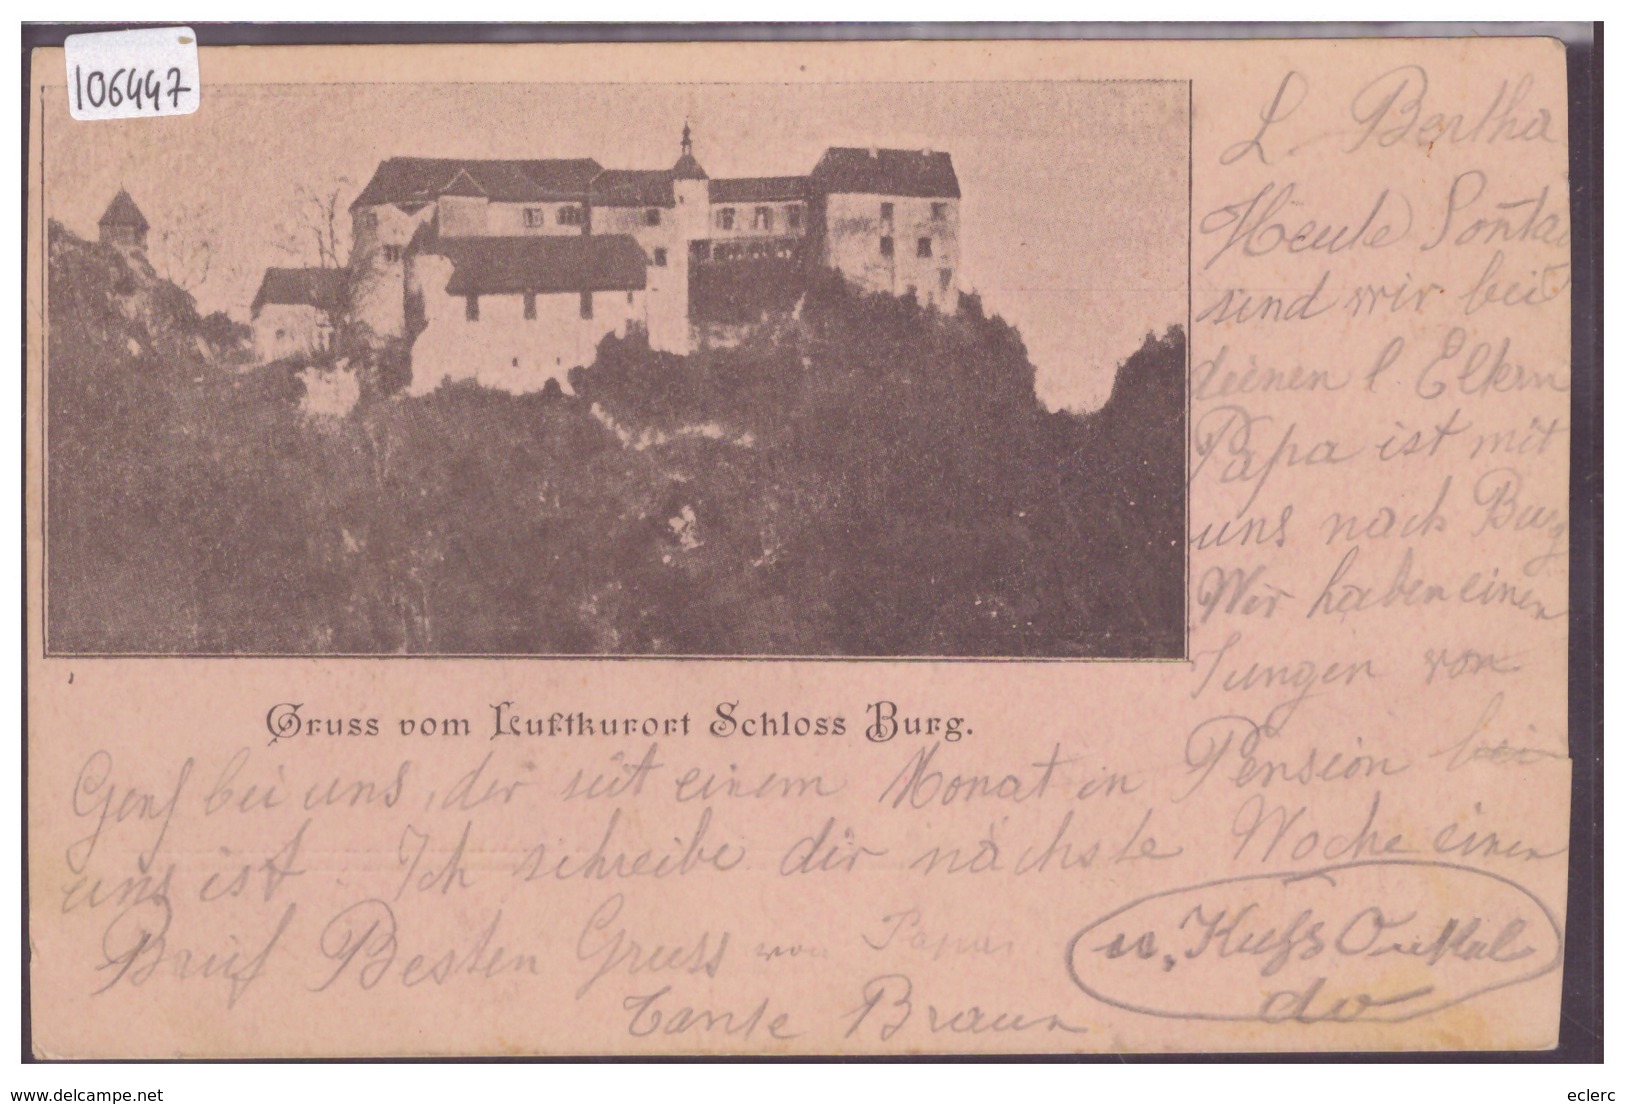 106447
L. Bertha
Heute Sontag
sind wir bei
deinen l. Eltern
Papa ist mit
uns nach Burg
Wir haben einen
Jungen von
Gruss vom Luftkurort Schloss Burg.
Genf bei uns, der seit einem Monat in Pension bei
uns ist. Ich schreibe dir nächste Woche einen
Brief Besten Gruss von Papa
u. Kuss Onkel
do
Tante Braun
delcampe.net
eclerc